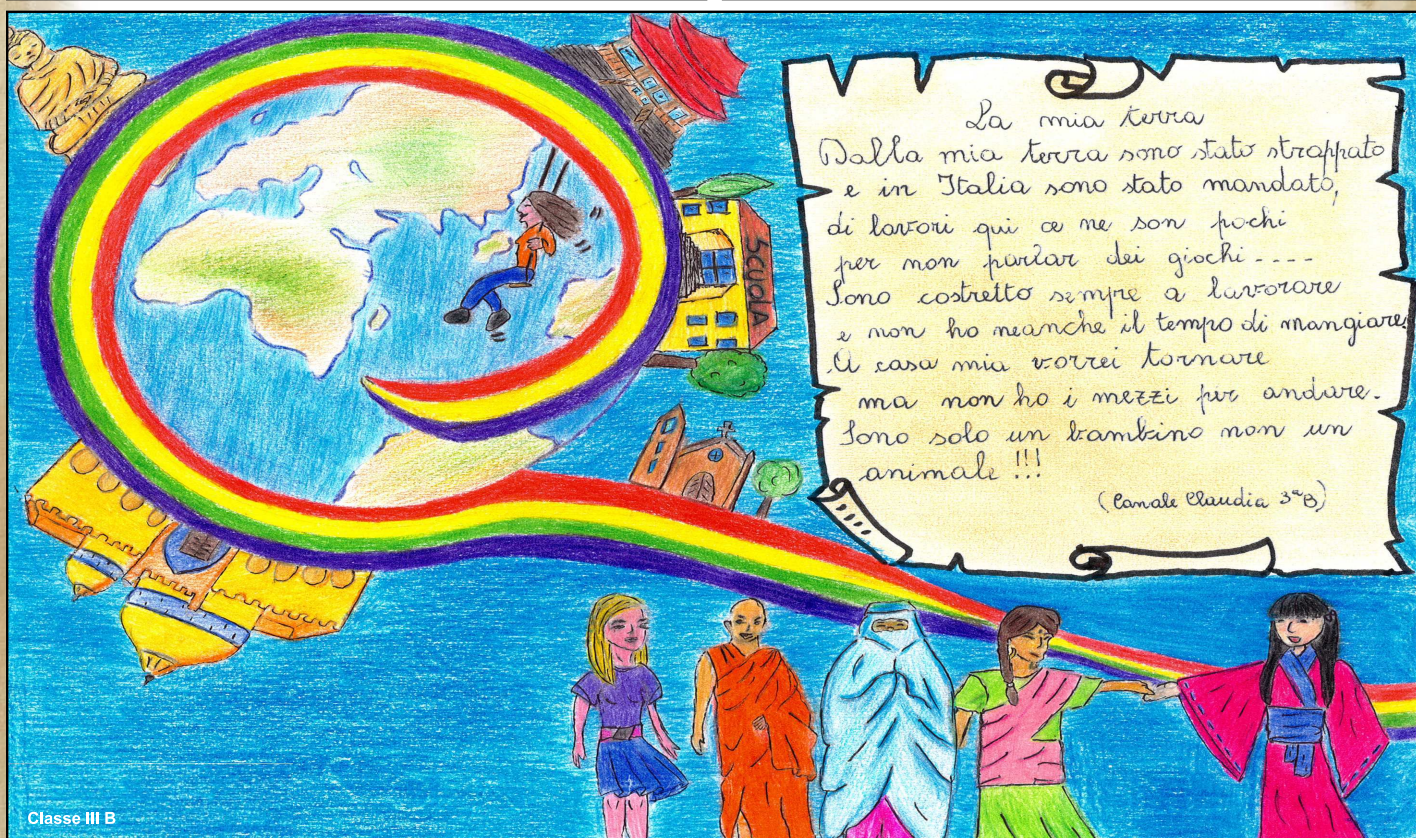 La mia terra
Dalla mia terra sono stato strappato
e in Italia sono stato mandato,
di lavori qui ce ne son pochi
per non parlar dei giochi ----
Sono costretto sempre a lavorare
e non ho neanche il tempo di mangiare.
A casa mia vorrei tornare
ma non ho i mezzi per andare.
Sono solo un bambino non un
animale !!!
(Canale Claudia 3ªB)
SCUOLA
Classe III B